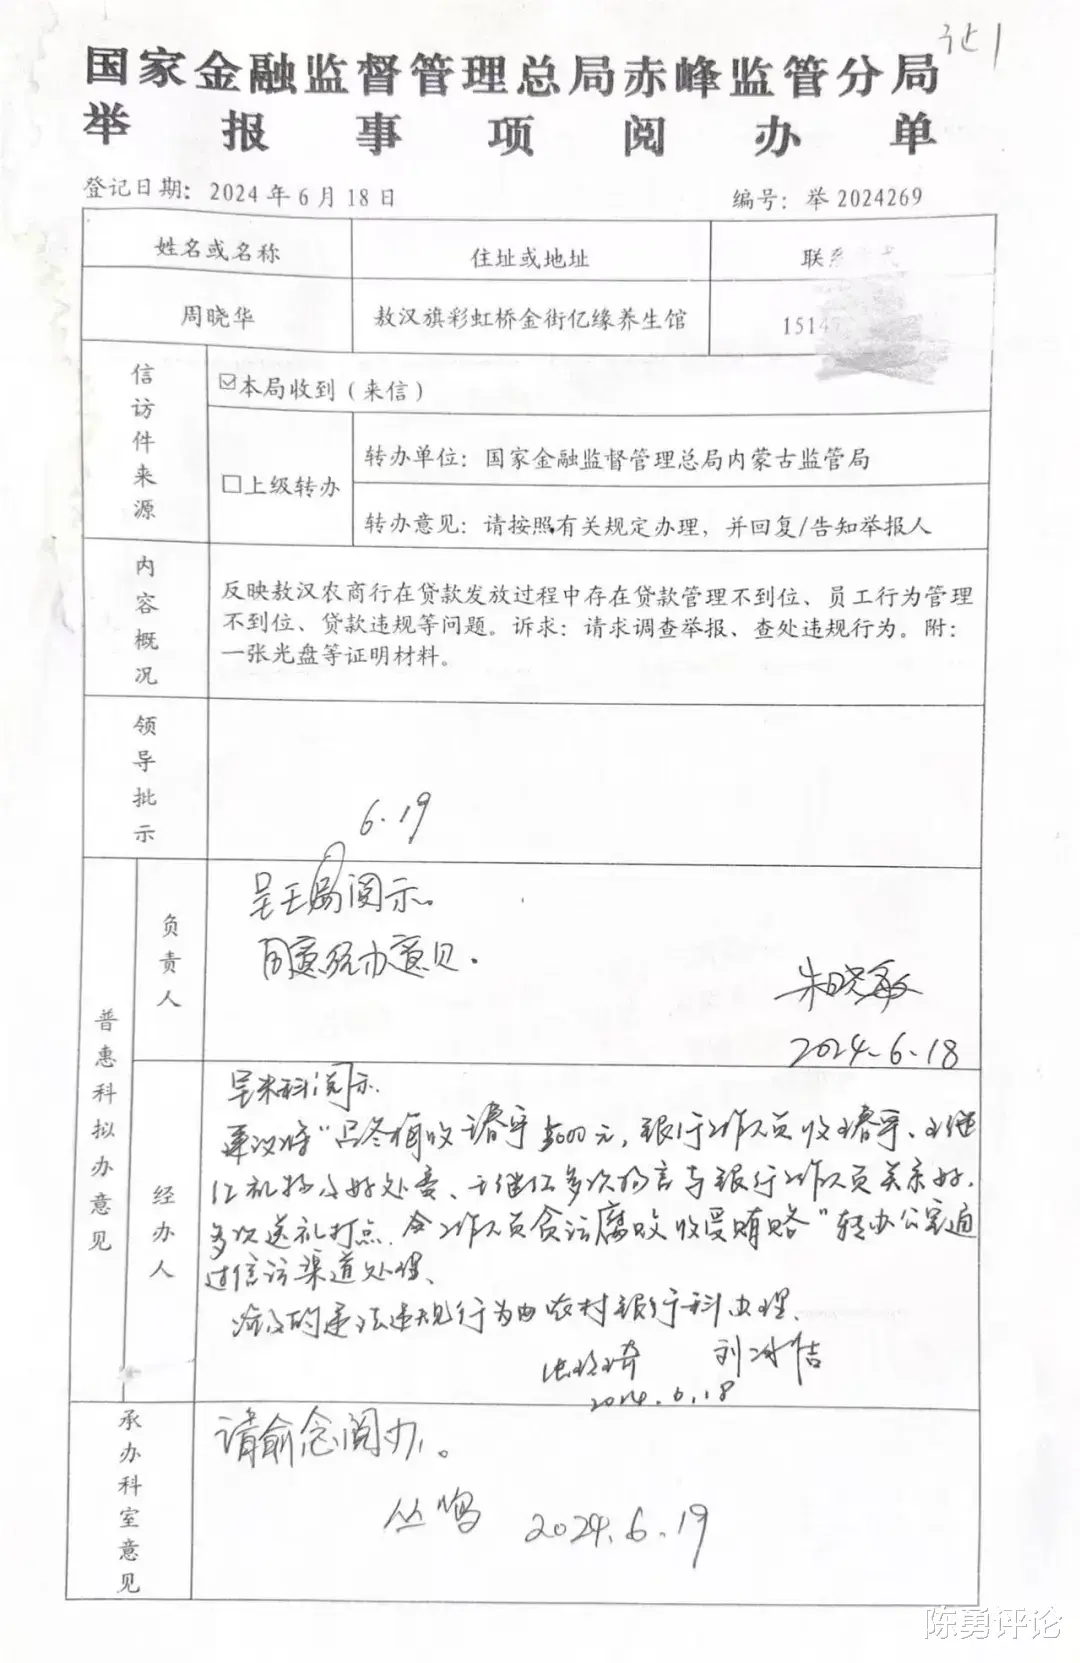 国家金融监督管理总局赤峰监管分局
举报事项阅办单
登记日期：2024年6月18日
编号：举2024269
姓名或名称
住址或地址
联系
周晓华
敖汉旗彩虹桥金街亿缘养生馆
1514
信访件来源
☑本局收到（来信）
□上级转办
转办单位：国家金融监督管理总局内蒙古监管局
转办意见：请按照有关规定办理，并回复/告知举报人
内容概况
反映敖汉农商行在贷款发放过程中存在贷款管理不到位、员工行为管理
不到位、贷款违规等问题。诉求：请求调查举报、查处违规行为。附：
一张光盘等证明材料。
领导批示
6.19
普惠科拟办意见
负责人
呈王局阅示。
同意经办意见。
朱晓敏
2024.6.18
经办人
呈朱科阅示.
建议将"吕冬梅收 5000元，银行工作员收 、王继
红礼物及好处费、王继红多次扬言与银行工作人员关系好，
多次送礼打点. 工作人员贪污腐败收受贿赂"转办公室通
过信访渠道处理、
涉及的违法违规行为由农村银行科办理.
刘冰洁
2024.6.18
承办科室意见
请俞念阅办。
丛鸣 2024.6.19
陈勇评论